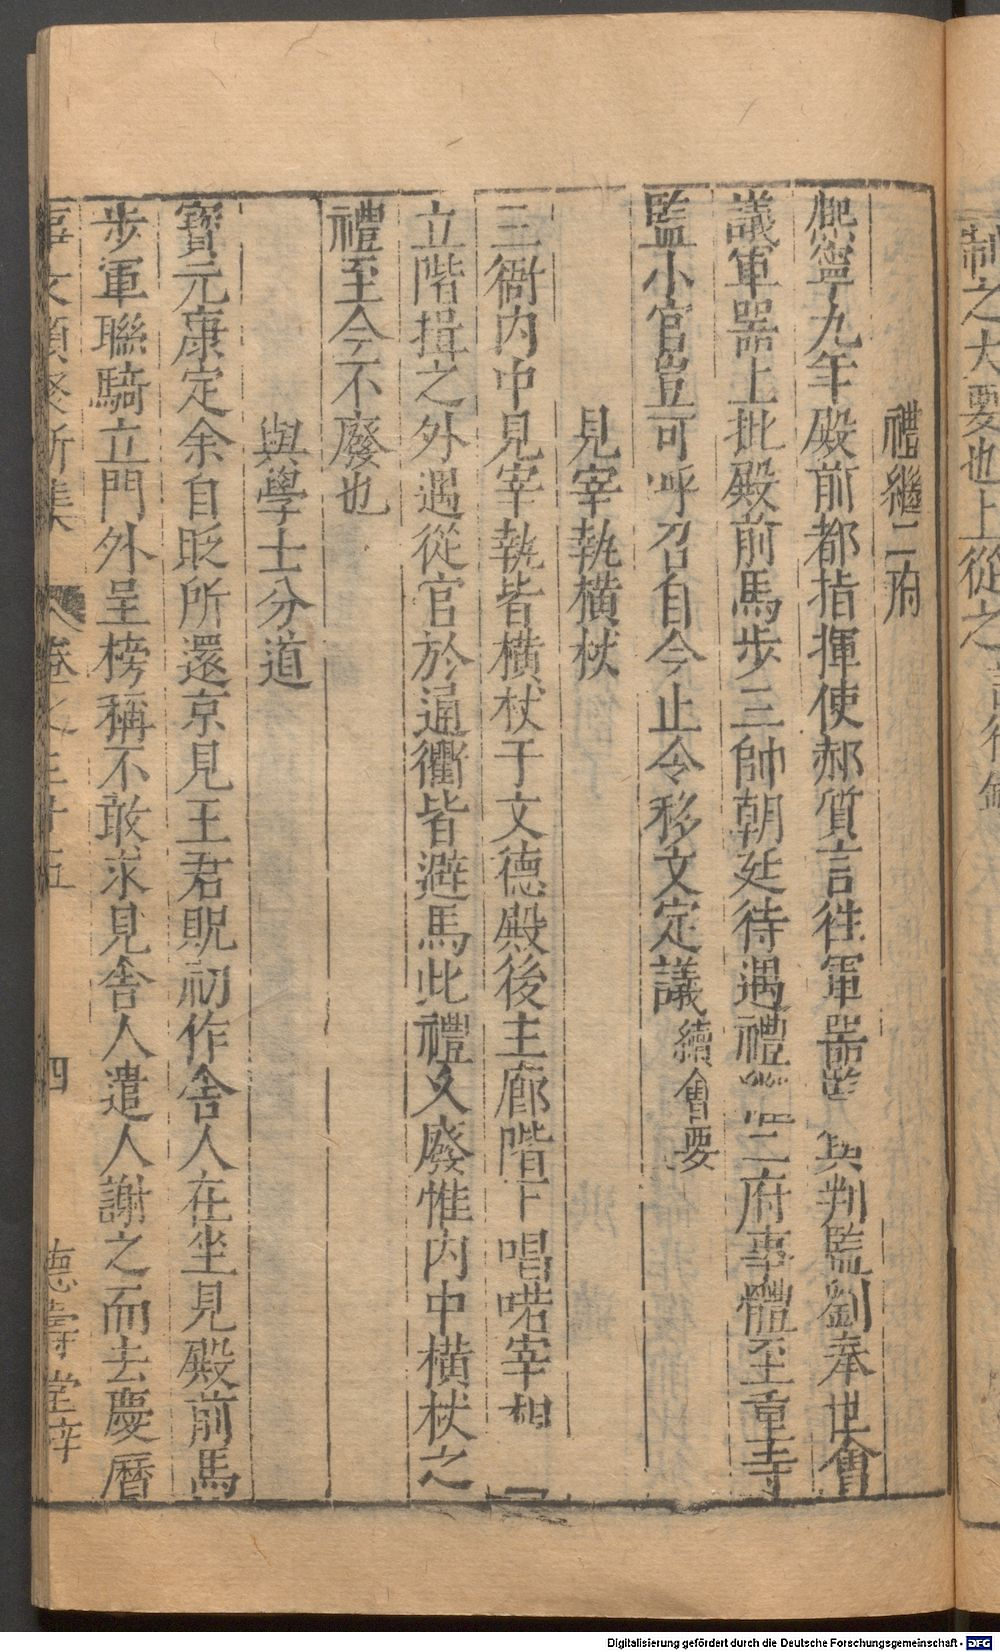 制之大要也上從之言行錄
禮繼二府
熈寧九年殿前都指揮使郝質言往軍器監與判監劉奉世會
議軍器上批殿前馬步三帥朝廷待遇禮繼二府事體至重寺
監小官豈可呼召自今止令移文定議續會要
見宰執橫杖
三衙内中見宰執皆橫杖于文德殿後主廊階下唱喏宰相
立階揖之外遇從官於通衢皆避馬此禮久廢惟内中橫杖之
禮至今不廢也
與學士分道
寳元康定余自貶所還京見王君貺初作舍人在坐見殿前馬
步軍聯騎立門外呈榜稱不敢求見舍人遣人謝之而去慶曆
事文類聚新集 卷之三十五 四 德壽堂梓
Digitalisierung gefördert durch die Deutsche Forschungsgemeinschaft - DFG